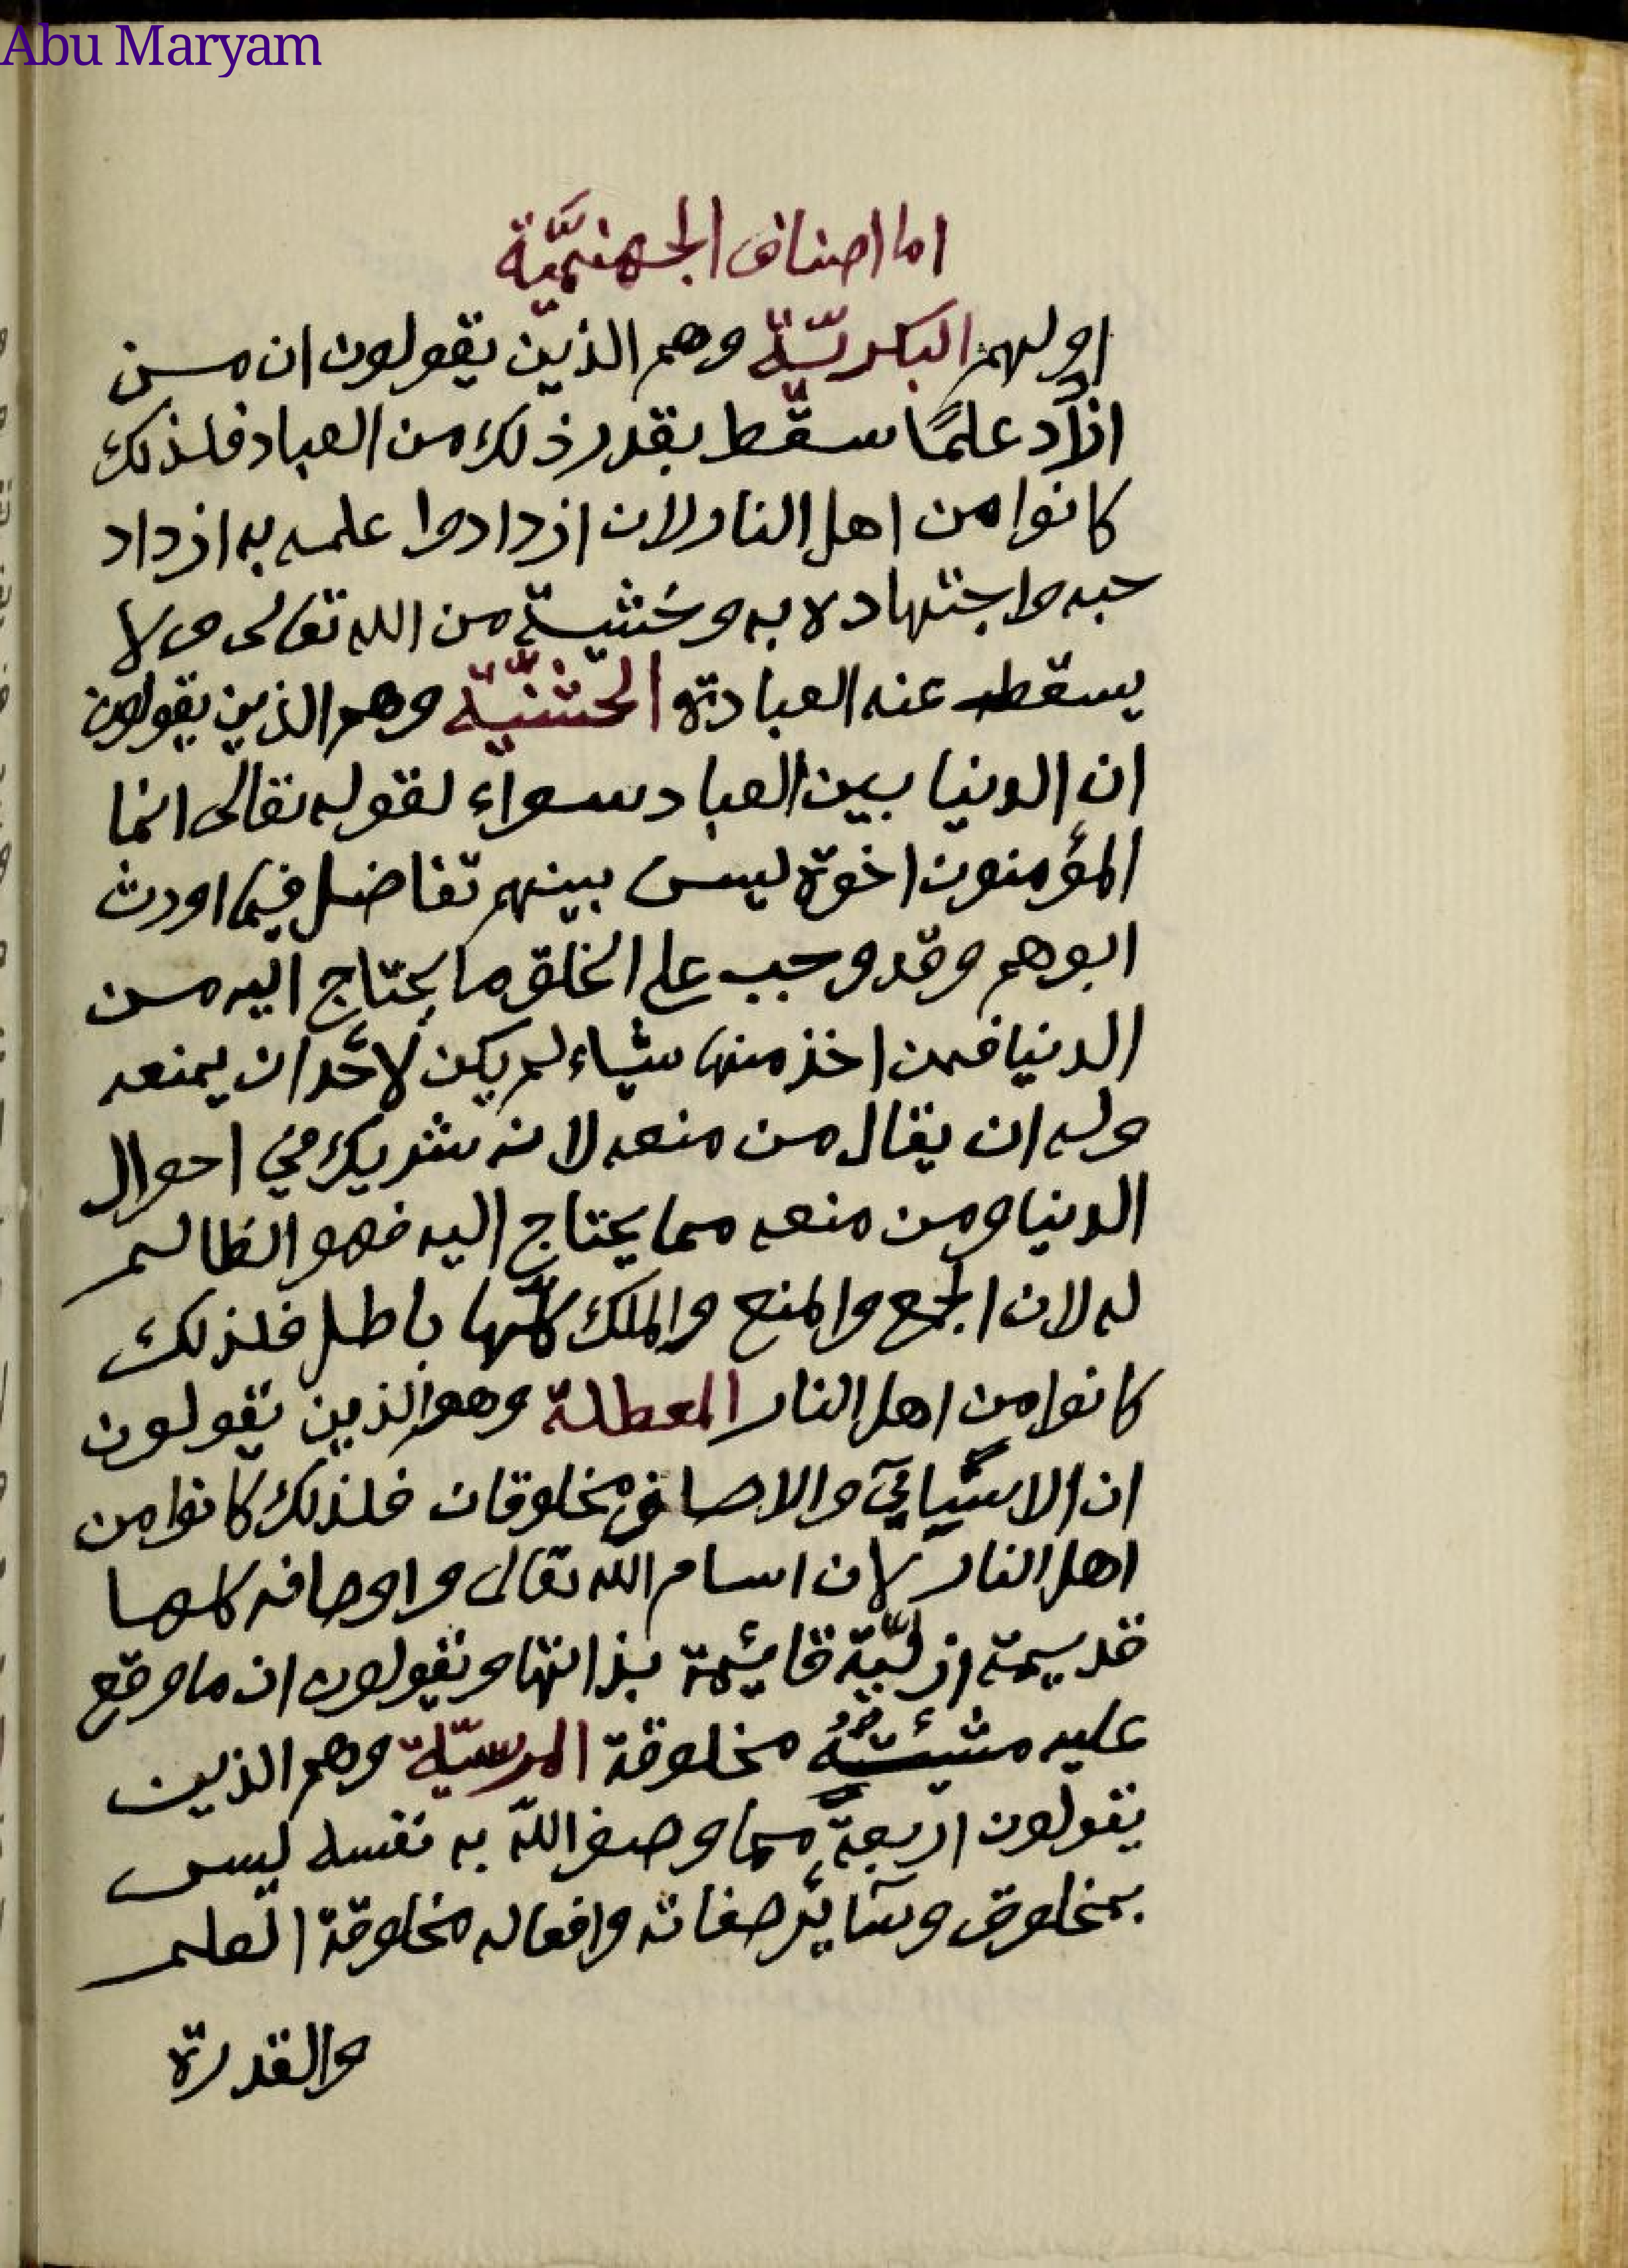 Abu Maryam
اما اصناف الجهنميَّة
اولهم البكريّة وهم الذين يقولون ان من
ازاد علمًا سقط بقدر ذلك من العباد فلذلك
كانوا من اهل النار لان ازدادوا علمه به ازداد
حبه واجتهاده به وخشية من الله تعالى ولا
يسقط عنه العبادة الحشنيّة وهم الذين يقولون
ان الدنيا بين العباد سواء لقوله تعالى انما
المؤمنون اخوة ليس بينهم تفاضل فيما اورث
ابوهم وقد وجب على الخلق ما يحتاج اليه من
الدنيا فمن اخذ منها شياء لم يكن لاحد ان يمنعه
وله ان يقال من منعه لانه شريك في احوال
الدنيا ومن منعه مما يحتاج اليه فهو الظالم
له لان الجمع والمنع والملك كلّها باطل فلذلك
كانوا من اهل النار المعطلة وهم الذين يقولون
ان الاسيائي والاصاف مخلوقات فلذلك كانوا من
اهل النار لان اسام الله تعالى واوصافه كلها
قديمة ازليّة قائمة بذاتها ويقولون ان ما وقع
عليه مشيئته مخلوقة المرسيّة وهم الذين
يقولون اربعة مما وصف اللّه به نفسه ليس
بمخلوق وسائر صفاته وافعاله مخلوقة العلم
والقدرة